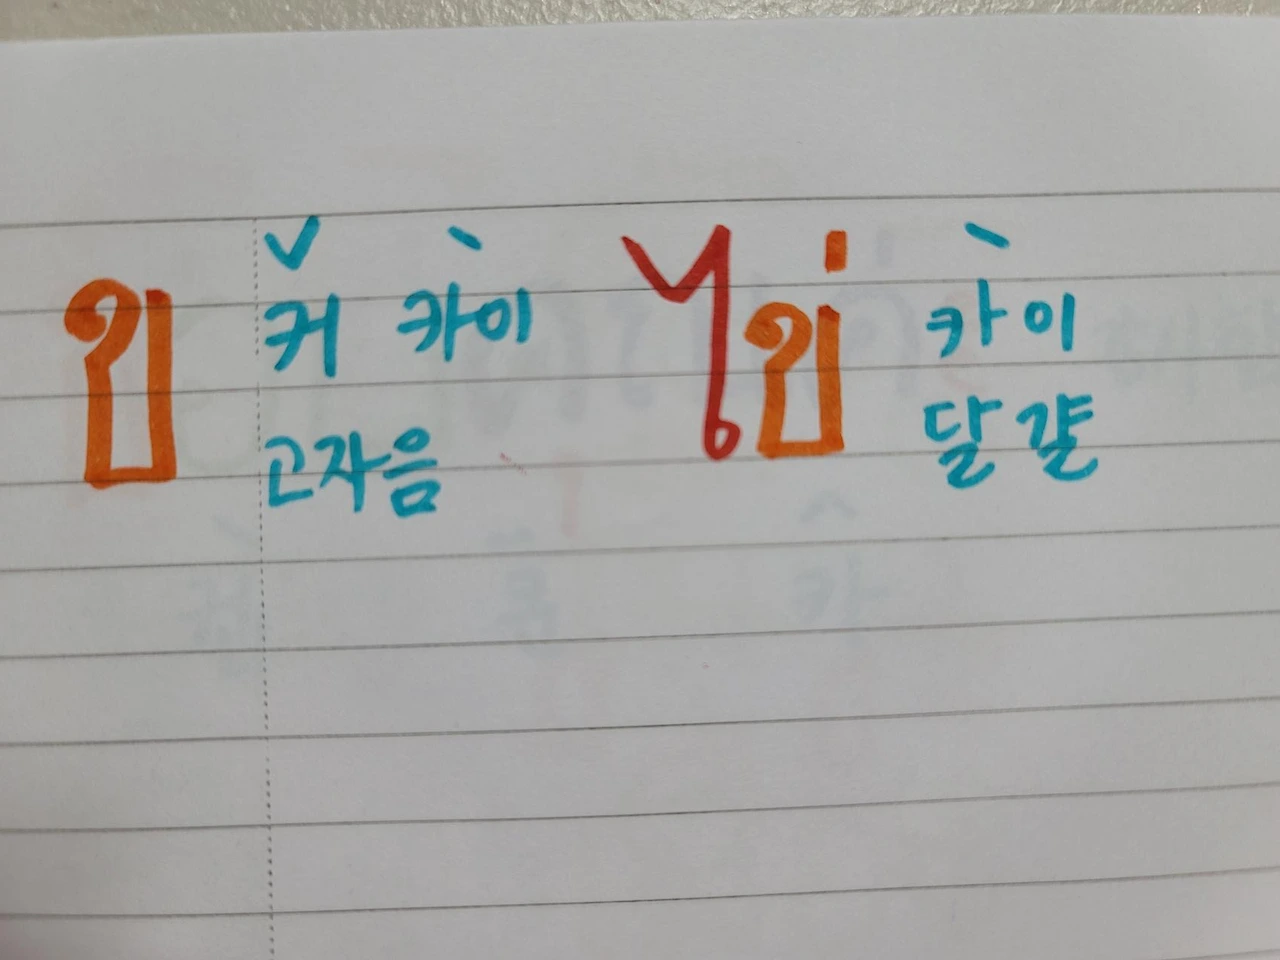 ข ˇ커 ˋ카이 ไข่ ˋ카이
고자음 달걀